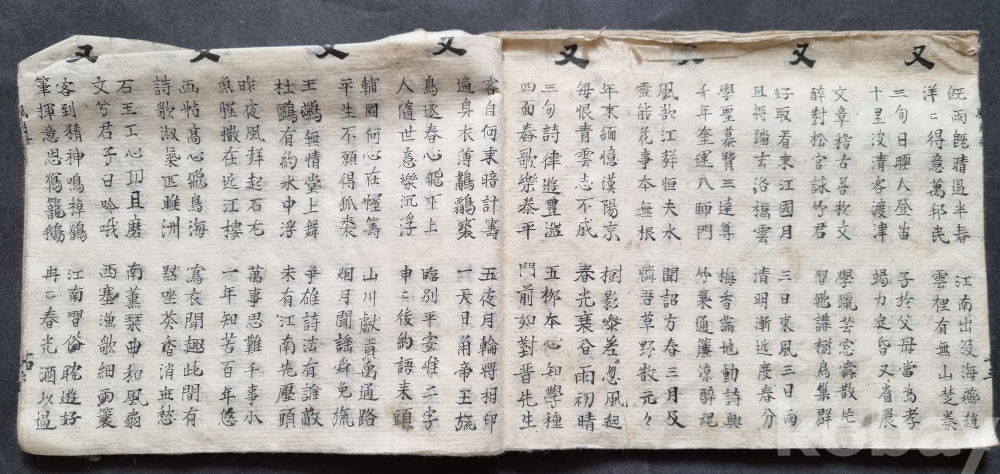 又 又 又 又
旣雨旣晴過半春 江南出没海燕趙
洋〻得意萬邦民 雲裡有無山楚秦
三旬日暖人登 子於父母當爲孝
十里波清客渡津 竭力定昏又省晨
文章稽古善枚文 學獵芸窓霧散片
醉對松官詠竹君 習飛樹鳥集群
好取看東江國月 三日東風三日雨
且將踏古洛橋雲 清明漸近度春分
學聖慕賢三達尊 梅香滿地動詩興
千年奎運八師門 竹裏通簾凉醉魂
風歌江恒夫水 聞詔方春三月及
靈能花事本無根 憐吾草野散元々
年来緬憶漢陽京 樹影參差忽風起
每恨青雲志不成 春光襄谷雨初晴
三旬詩律遊豐溢 五柳本心知學種
四面春歌樂泰平 門前如對晋先生
又 又 又 又
客自何来暗計籌 五夜月輪將相印
遍身衣薄鷫鸘裘 一天日角帝王旒
鳥逐春心飛下上 臨別平安惟二字
人隨世意樂沉浮 申〻後約語来頭
輔國何心在幄籌 山川獻萬通路
平生不願得狐裘 烟月聞謠舜免旒
王無情堂上舞 爭雄詩法有誰敵
杜鷗有約水中浮 未有江南先壓頭
昨夜風起石尤 萬事思難千事小
魚腥撒在近江樓 一年知苦百年悠
西帖高心飛鳥海 烏衣閒趣此間有
詩歌淑氣匹雎洲 默坐茶香消世愁
石王工心刀且磨 南薰琴曲和風扇
文兮君子日吟哦 西塞漁歌細雨簑
客到猜神鳴棹鶴 江南習俗耽遊好
筆揮意思寫籠鵝 冉〻春光酒火過
kobay